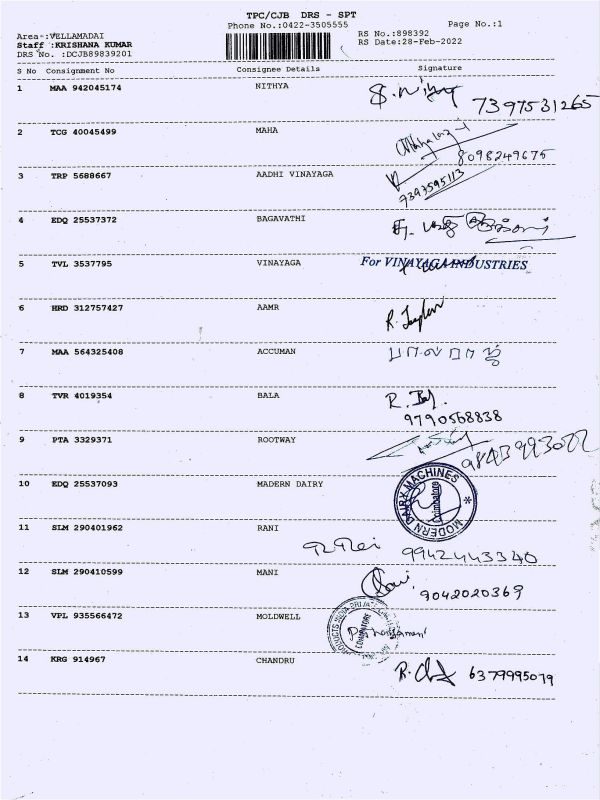 TPC/CJB DRS - SPT
Phone No.:0422-3505555
Page No.:1
Area-:VELLAMADAI
RS No.:898392
Staff :KRISHANA KUMAR
RS Date:28-Feb-2022
DRS No. :DCJB89839201
S No Consignment No Consignee Details Signature
1 MAA 942045174 NITHYA
7397531265
2 TCG 40045499 MAHA
8098249675
3 TRP 5688667 AADHI VINAYAGA
7393595113
4 EDQ 25537372 BAGAVATHI
5 TVL 3537795 VINAYAGA For VINAYAGA INDUSTRIES
6 HRD 312757427 AAMR
7 MAA 564325408 ACCUMAN
8 TVR 4019354 BALA
9790568838
9 PTA 3329371 ROOTWAY
10 EDQ 25537093 MADERN DAIRY
MODERN DAIRY MACHINES
Coimbatore
11 SLM 290401962 RANI
9942443340
12 SLM 290410599 MANI
9042020369
13 VPL 935566472 MOLDWELL
14 KRG 914967 CHANDRU
6379995079